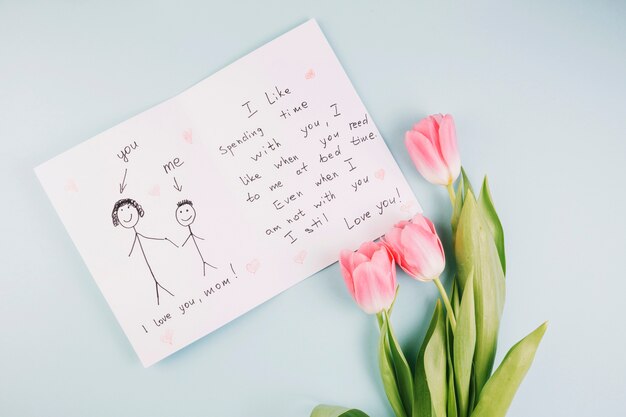 you
me
I love you, mom!
I Like
Spending time
with you, I
like when you reed
to me at bed time.
Even when I
am not with you
I still Love you!